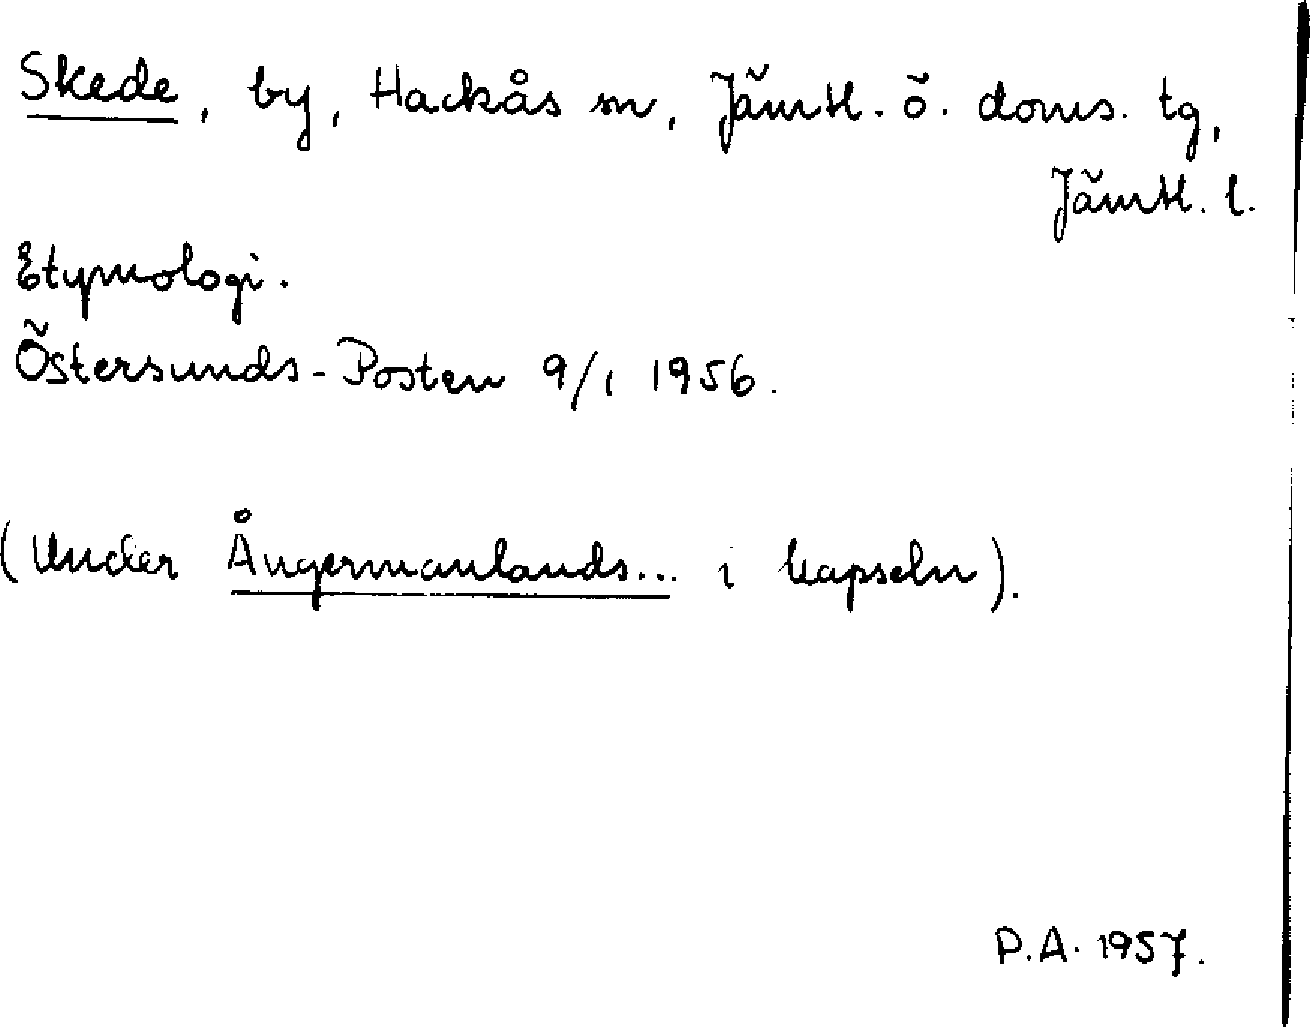 Skede, by, Hackås sn, Jämtl. ö. doms. tg,
Jämtl. l.
Etymologi.
Östersunds-Posten 9/1 1956.
(Under Ångermanlands... i kapseln).
P.A. 1957.